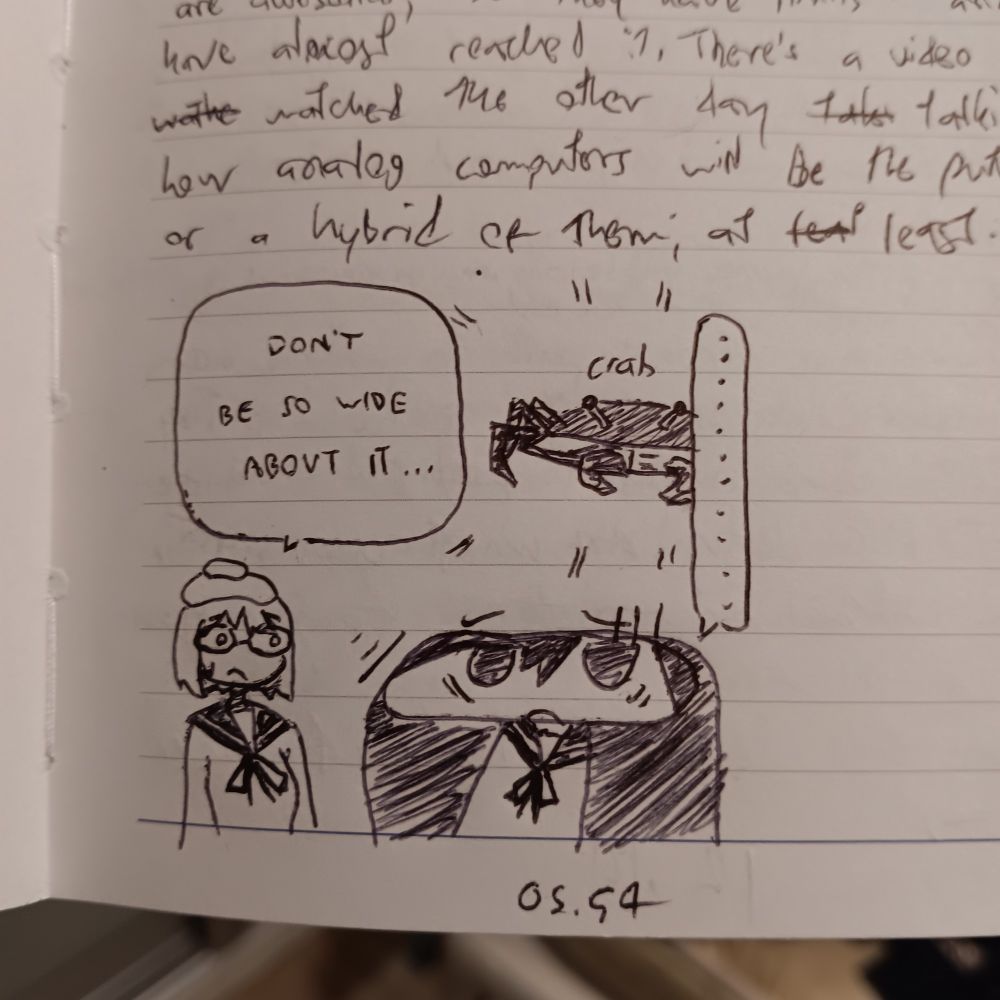 are awesome, they have
have almost reached it. There's a video
watched the other day talki
how analog computers will be the
or a hybrid of them, at least.
DON'T
BE SO WIDE
ABOUT IT...
crab
..............
05.54